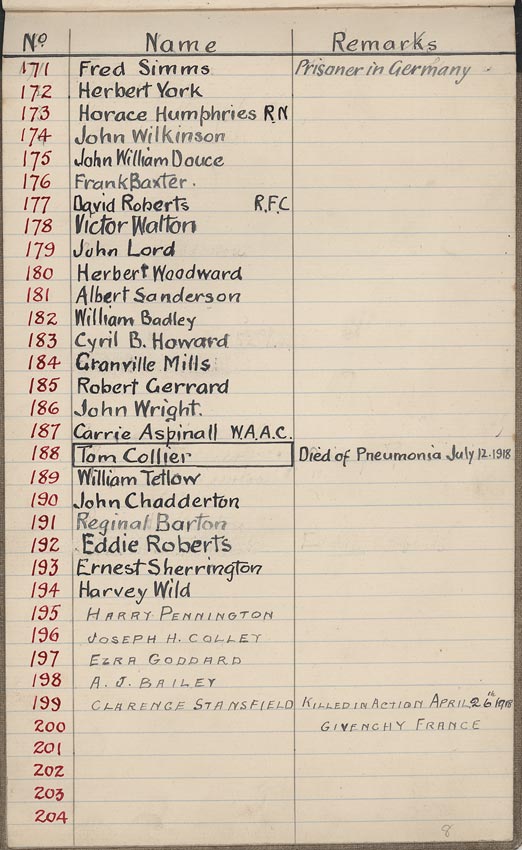 No Name Remarks
171 Fred Simms Prisoner in Germany
172 Herbert York
173 Horace Humphries R.N
174 John Wilkinson
175 John William Douce
176 Frank Baxter.
177 David Roberts R.F.C
178 Victor Walton
179 John Lord
180 Herbert Woodward
181 Albert Sanderson
182 William Badley
183 Cyril B. Howard
184 Granville Mills
185 Robert Gerrard
186 John Wright.
187 Carrie Aspinall W.A.A.C.
188 Tom Collier Died of Pneumonia July 12.1918
189 William Tetlow
190 John Chadderton
191 Reginal Barton
192 Eddie Roberts
193 Ernest Sherrington
194 Harvey Wild
195 HARRY PENNINGTON
196 JOSEPH H. COLLEY
197 EZRA GODDARD
198 A. J. BAILEY
199 CLARENCE STANSFIELD KILLED IN ACTION APRIL 26th 1918
200 GIVENCHY FRANCE
201
202
203
204
8